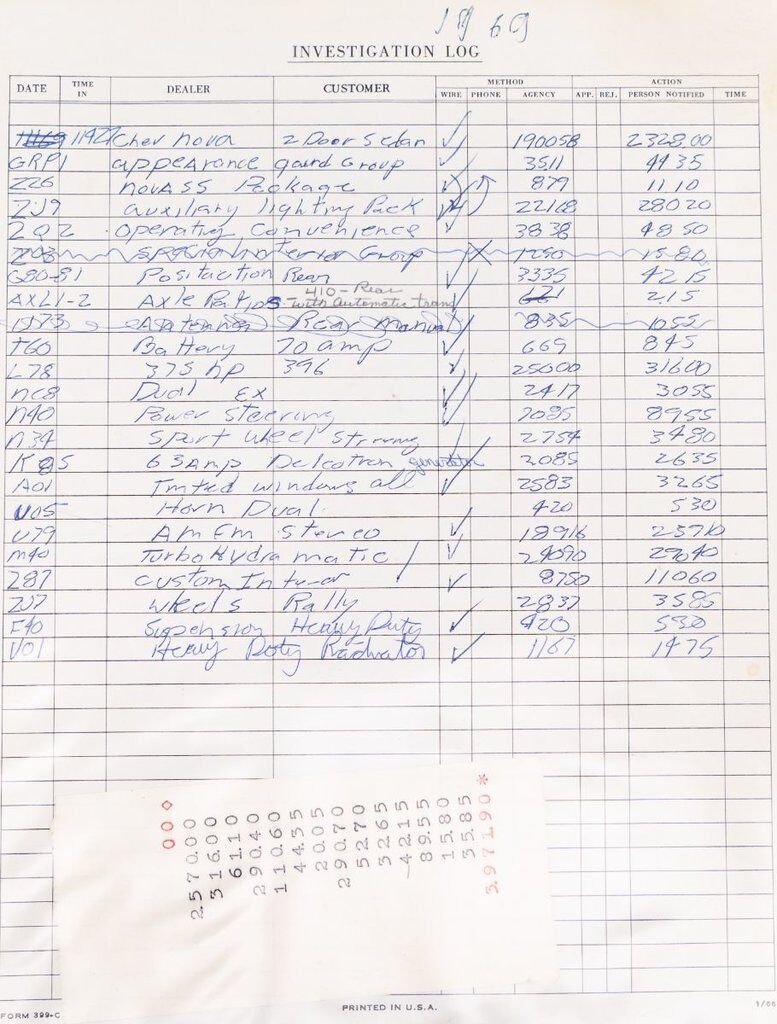 1969
INVESTIGATION LOG
DATE TIME IN DEALER CUSTOMER METHOD ACTION
WIRE PHONE AGENCY APP. REJ. PERSON NOTIFIED TIME
11427 Chev Nova 2 Door Sedan 190058 232800
GRP1 appearance guard Group 3511 4435
Z26 Nova SS Package 879 1110
ZJ9 auxiliary lighting Pack 22168 28020
ZQ2 Operating Convenience 3838 4850
Interior Group 1250 1580
G80-81 Positaction Rear 3335 4215
410-Rear
AXL1-2 Axle Ratios with automatic trans 215
Rear manual 835 1055
T60 Battery 70 amp 669 845
L78 375 hp 396 25000 31600
NC8 Dual EX 2417 3055
N40 Power Steering 7085 8955
N34 Sport Wheel Strring 2754 3480
K85 63 Amp Delcotron generator 2085 2635
A01 Tinted windows all 2583 3265
U05 Horn Dual 420 530
U79 Am Fm Stereo 18916 23910
M40 Turbo Hydra matic 24090 29040
Z87 Custom Interior 8750 11060
ZJ7 Wheels Rally 2837 3585
F40 Suspension Heavy Duty 420 530
V01 Heavy Duty Radiator 1167 1475
0 0 ◊
2,570.00
316.00
61.10
290.40
110.60
44.35
20.05
290.70
52.70
32.65
42.15
89.55
15.80
35.85
3,971.90 *
FORM 399-C PRINTED IN U.S.A. 1/66